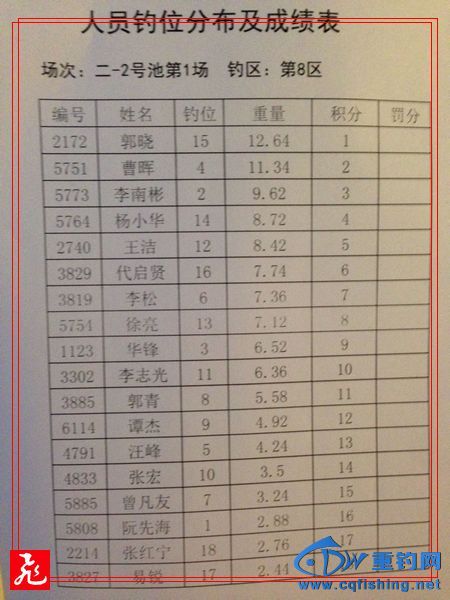 人员钓位分布及成绩表
场次：二-2号池第1场 钓区：第8区
编号 姓名 钓位 重量 积分 罚分
2172 郭晓 15 12.64 1
5751 曹晖 4 11.34 2
5773 李南彬 2 9.62 3
5764 杨小华 14 8.72 4
2740 王洁 12 8.42 5
3829 代启贤 16 7.74 6
3819 李松 6 7.36 7
5754 徐亮 13 7.12 8
1123 华锋 3 6.52 9
3302 李志光 11 6.36 10
3885 郭青 8 5.58 11
6114 谭杰 9 4.92 12
4791 汪峰 5 4.24 13
4833 张宏 10 3.5 14
5885 曾凡友 7 3.24 15
5808 阮先海 1 2.88 16
2214 张红宁 18 2.76 17
3827 易锐 17 2.44
重钓网
www.cqfishing.net